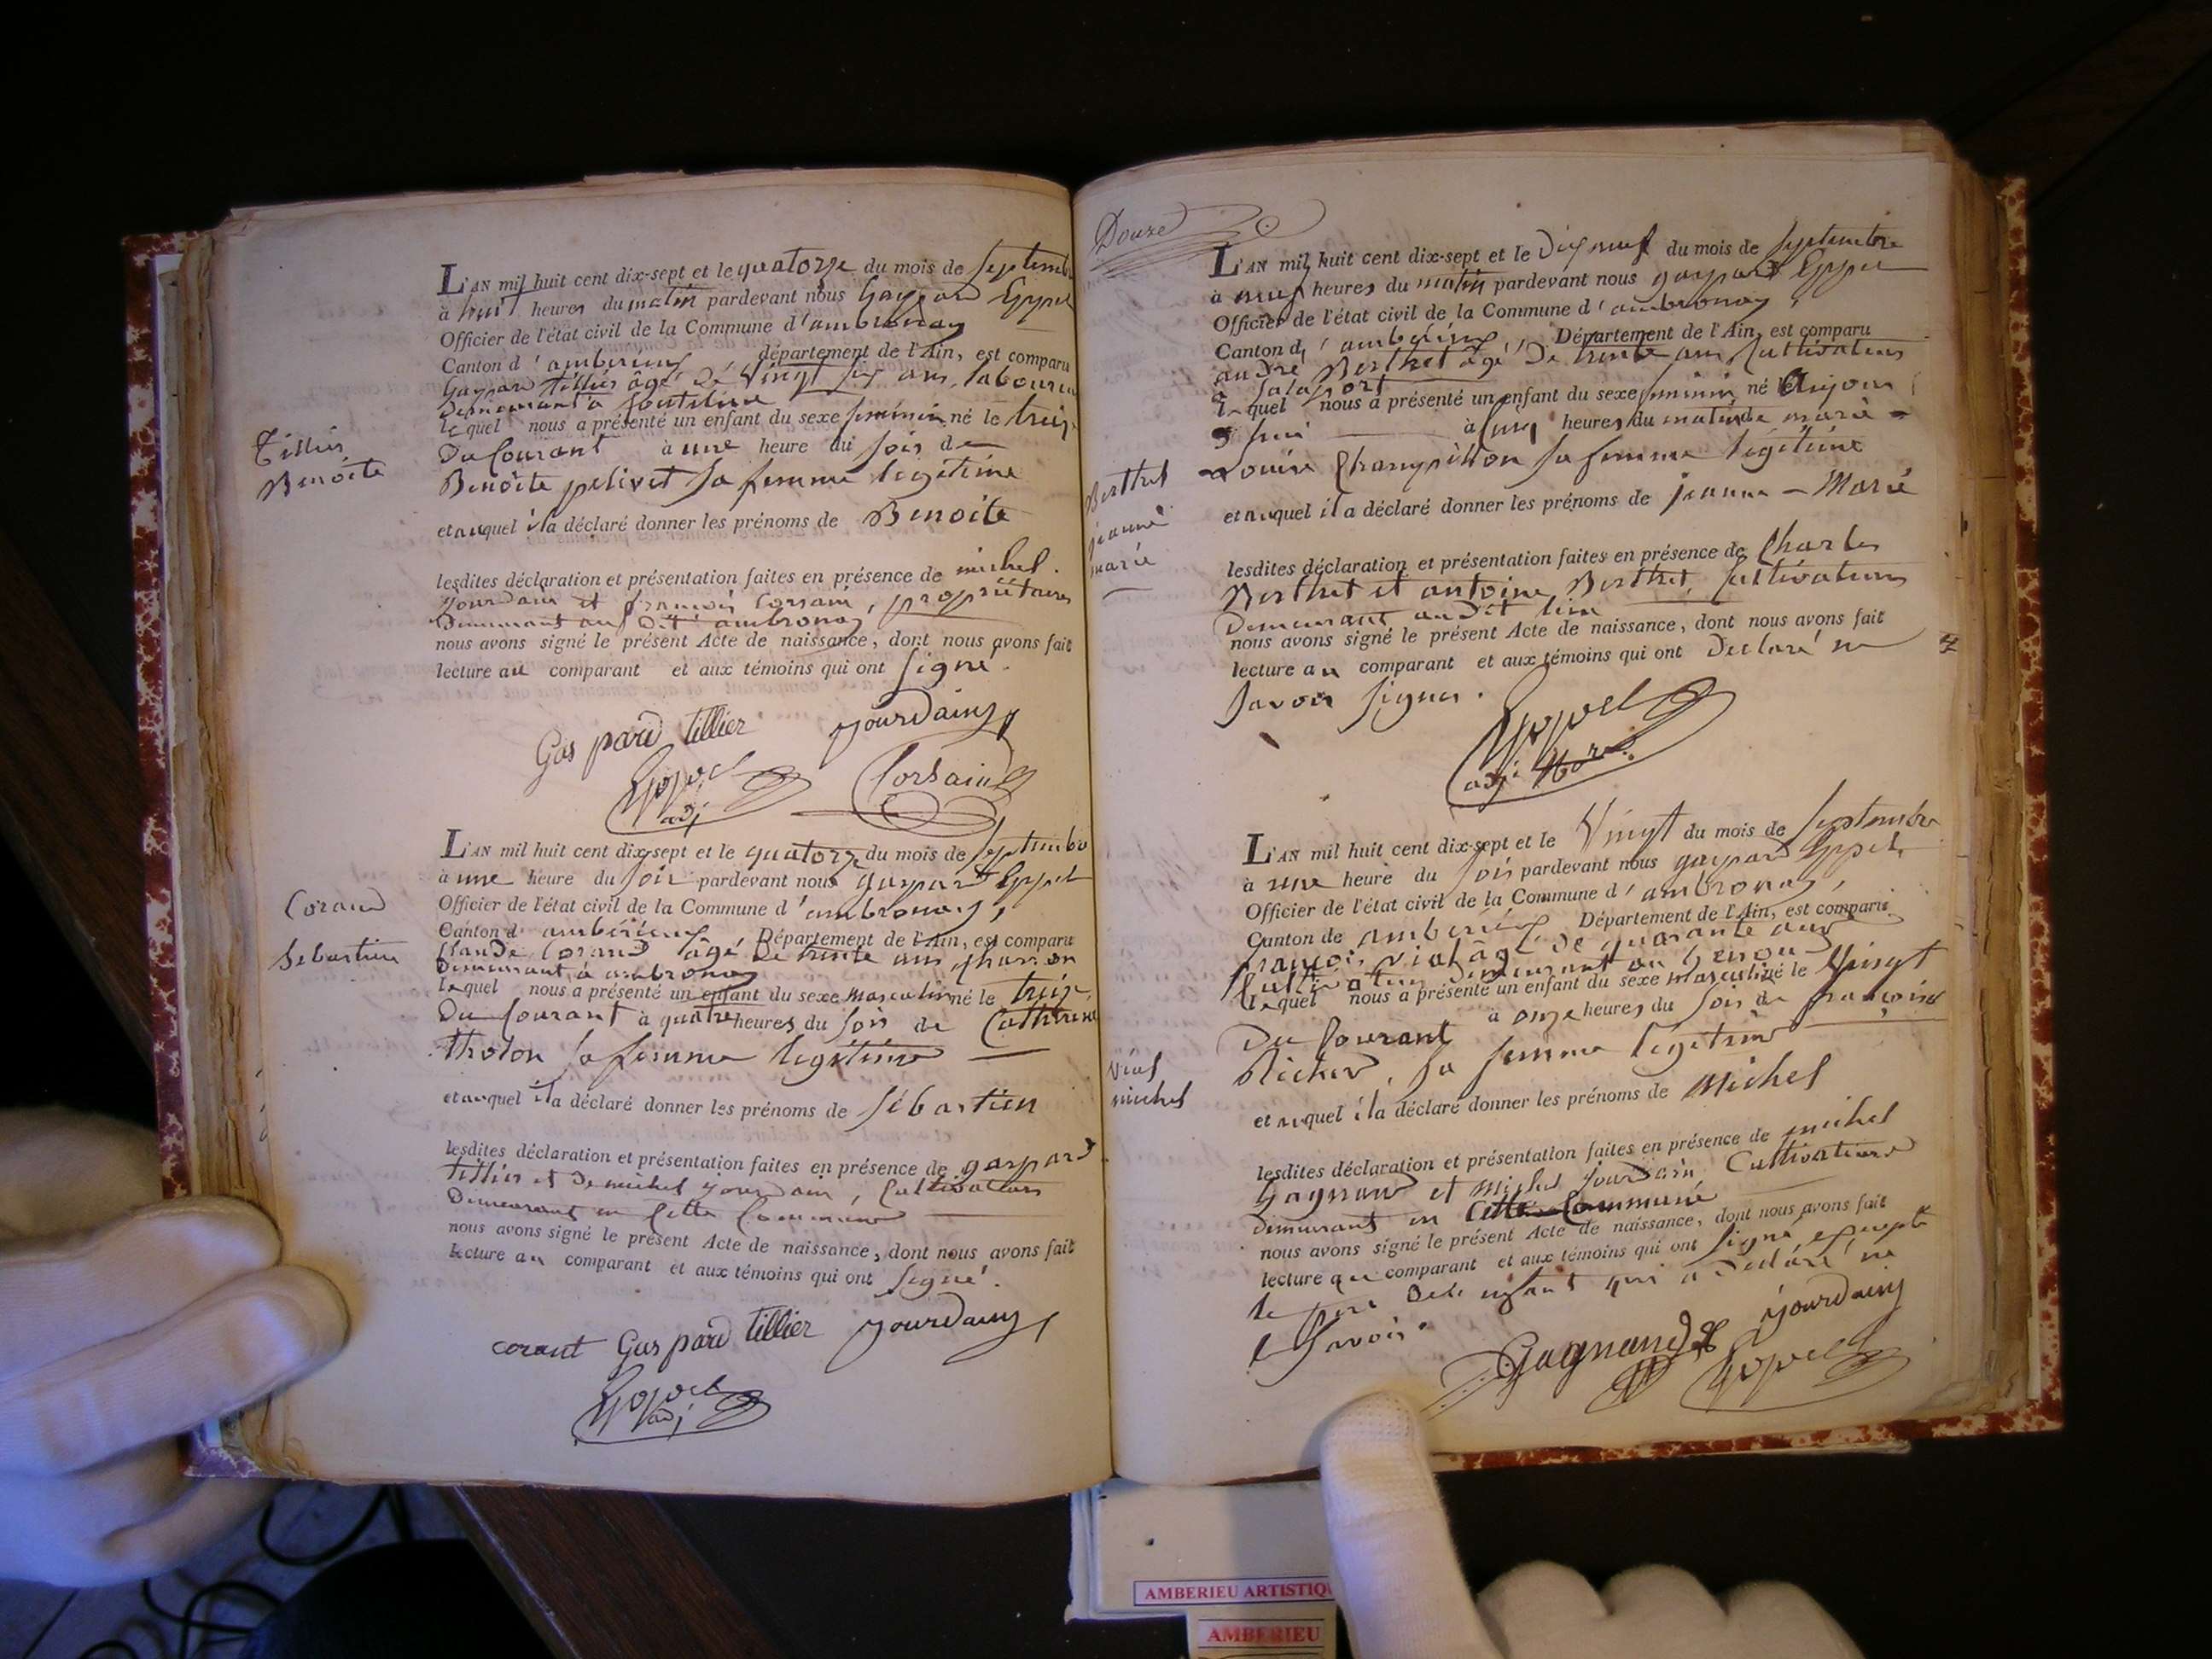 Tillier
Benoite
L'AN mil huit cent dix-sept et le quatorze du mois de septembre
à huit heures du matin pardevant nous Gaspard Eppel
Officier de l'état civil de la Commune d'ambronay
Canton d'amberieux département de l'Ain, est comparu
Gaspard tillier âgé de vingt six ans, laboureur
Demeurant à
lequel nous a présenté un enfant du sexe féminin né le treize
Du Courant à une heure du soir de
Benoite pelivet sa femme legitime
et auquel il a déclaré donner les prénoms de Benoite
lesdites déclaration et présentation faites en présence de michel
yourdain et françois Corsain, propriétaires
Demeurant au dit ambronay
nous avons signé le présent Acte de naissance, dont nous avons fait
lecture au comparant et aux témoins qui ont signé.
Gaspard tillier yourdain
Eppel adj Corsain
Corand
Sebastien
L'AN mil huit cent dix-sept et le quatorze du mois de septembre
à une heure du soir pardevant nous gaspard Eppel
Officier de l'état civil de la Commune d'ambronay,
Canton d'amberieux Département de l'Ain, est comparu
Claude Corand âgé De trente ans charron
Demeurant à ambronay
lequel nous a présenté un enfant du sexe masculin né le treize
Du Courant à quatre heures du soir de Catherine
tholon sa femme legitime
et auquel il a déclaré donner les prénoms de sébastien
lesdites déclaration et présentation faites en présence de gaspard
tillier et De michel yourdain, Cultivateurs
Demeurant en Cette Commune
nous avons signé le présent Acte de naissance, dont nous avons fait
lecture au comparant et aux témoins qui ont signé.
corant Gaspard tillier yourdain
Eppel adj
Douze
Berthet
jeanne
marie
L'AN mil huit cent dix-sept et le Dix neuf du mois de septembre
à neuf heures du matin pardevant nous gaspard Eppel
Officier de l'état civil de la Commune d'ambronay,
Canton d'amberieux, Département de l'Ain, est comparu
andré Berthet âgé De trente ans Cultivateur
à
lequel nous a présenté un enfant du sexe feminin né le Aujour
d'hui à cinq heures du matin de marie
Louise Champillon sa femme legitime
et auquel il a déclaré donner les prénoms de jeanne - Marie
lesdites déclaration et présentation faites en présence de Charles
Berthet et antoine Berthet, Cultivateurs
Demeurant audit lieu
nous avons signé le présent Acte de naissance, dont nous avons fait
lecture au comparant et aux témoins qui ont Declaré ne
savoir signer.
Eppel
adj
vial
michel
L'AN mil huit cent dix-sept et le Vingt du mois de septembre
à une heure du soir pardevant nous gaspard Eppel
Officier de l'état civil de la Commune d'ambronay,
Canton de amberieux Département de l'Ain, est comparu
françois vial âgé de quarante ans
Cultivateur Demeurant au
lequel nous a présenté un enfant du sexe masculin né le Vingt
Du Courant à onze heures du soir de françoise
sa femme legitime
et auquel il a déclaré donner les prénoms de Michel
lesdites déclaration et présentation faites en présence de michel
Gagnard et Michel jourdain Cultivateurs
demeurant en Cette Commune
nous avons signé le présent Acte de naissance, dont nous avons fait
lecture au comparant et aux témoins qui ont signé, excepté
le père De l'enfant qui a Declaré ne
savoir.
Gagnard yourdain
Eppel
AMBERIEU ARTISTIQU
AMBERIEU